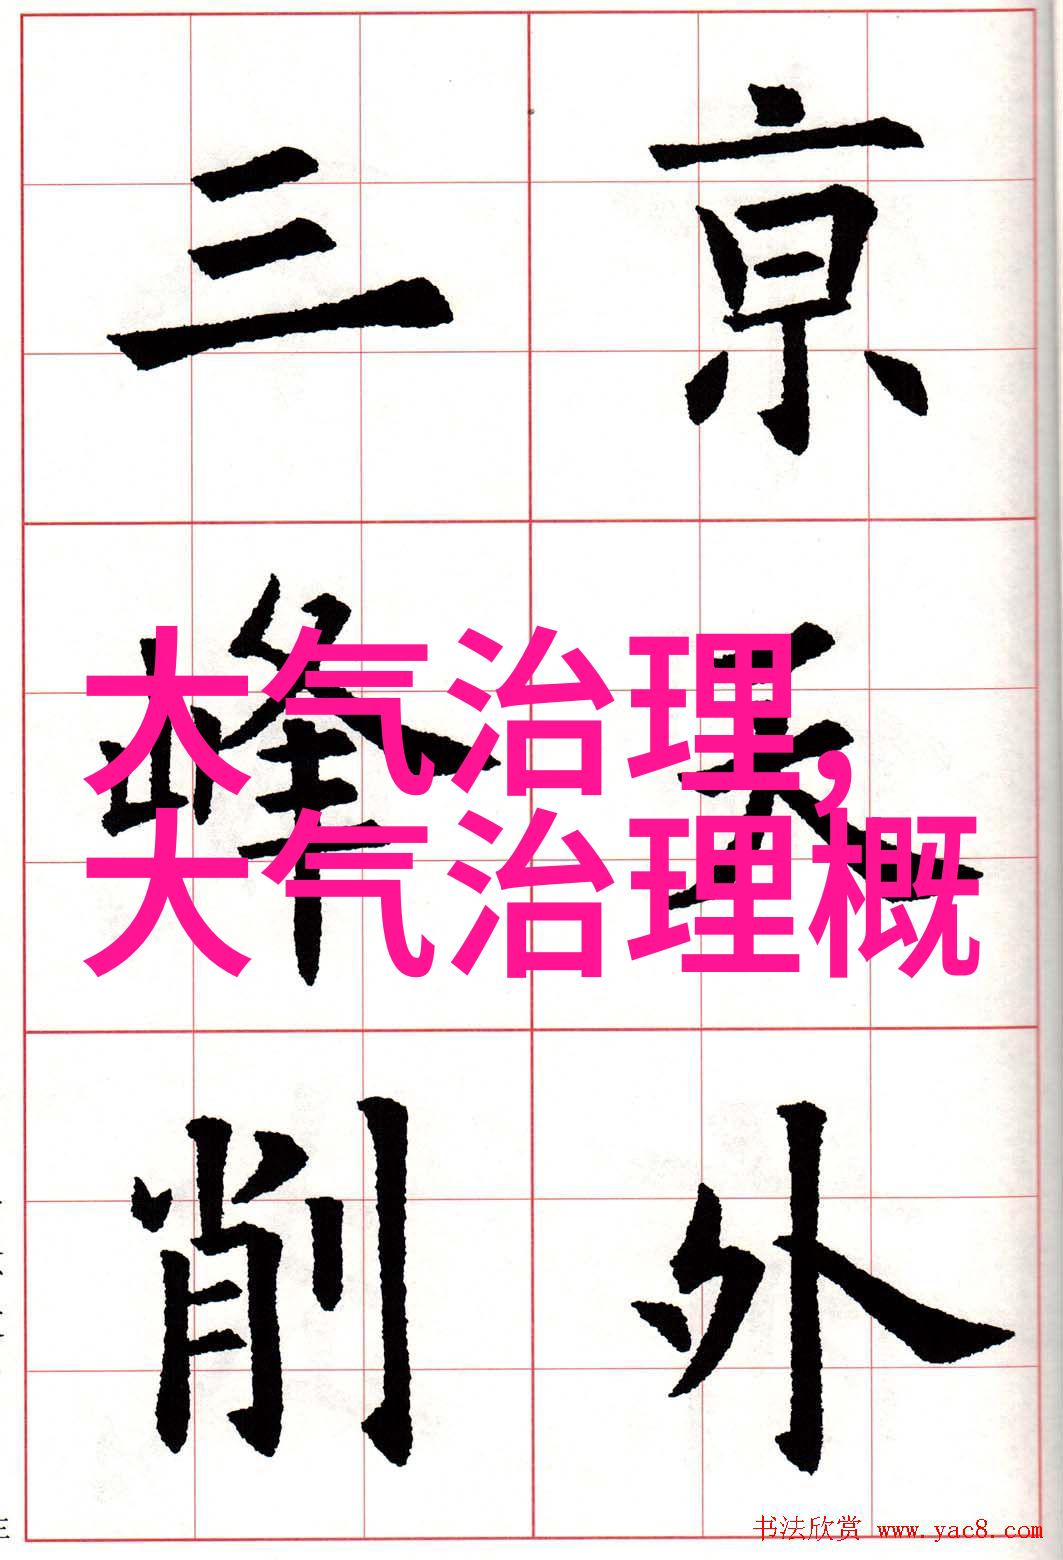 亰天外
三峰削
大气治理,
大气治理概
书法欣赏 www.yac8.com